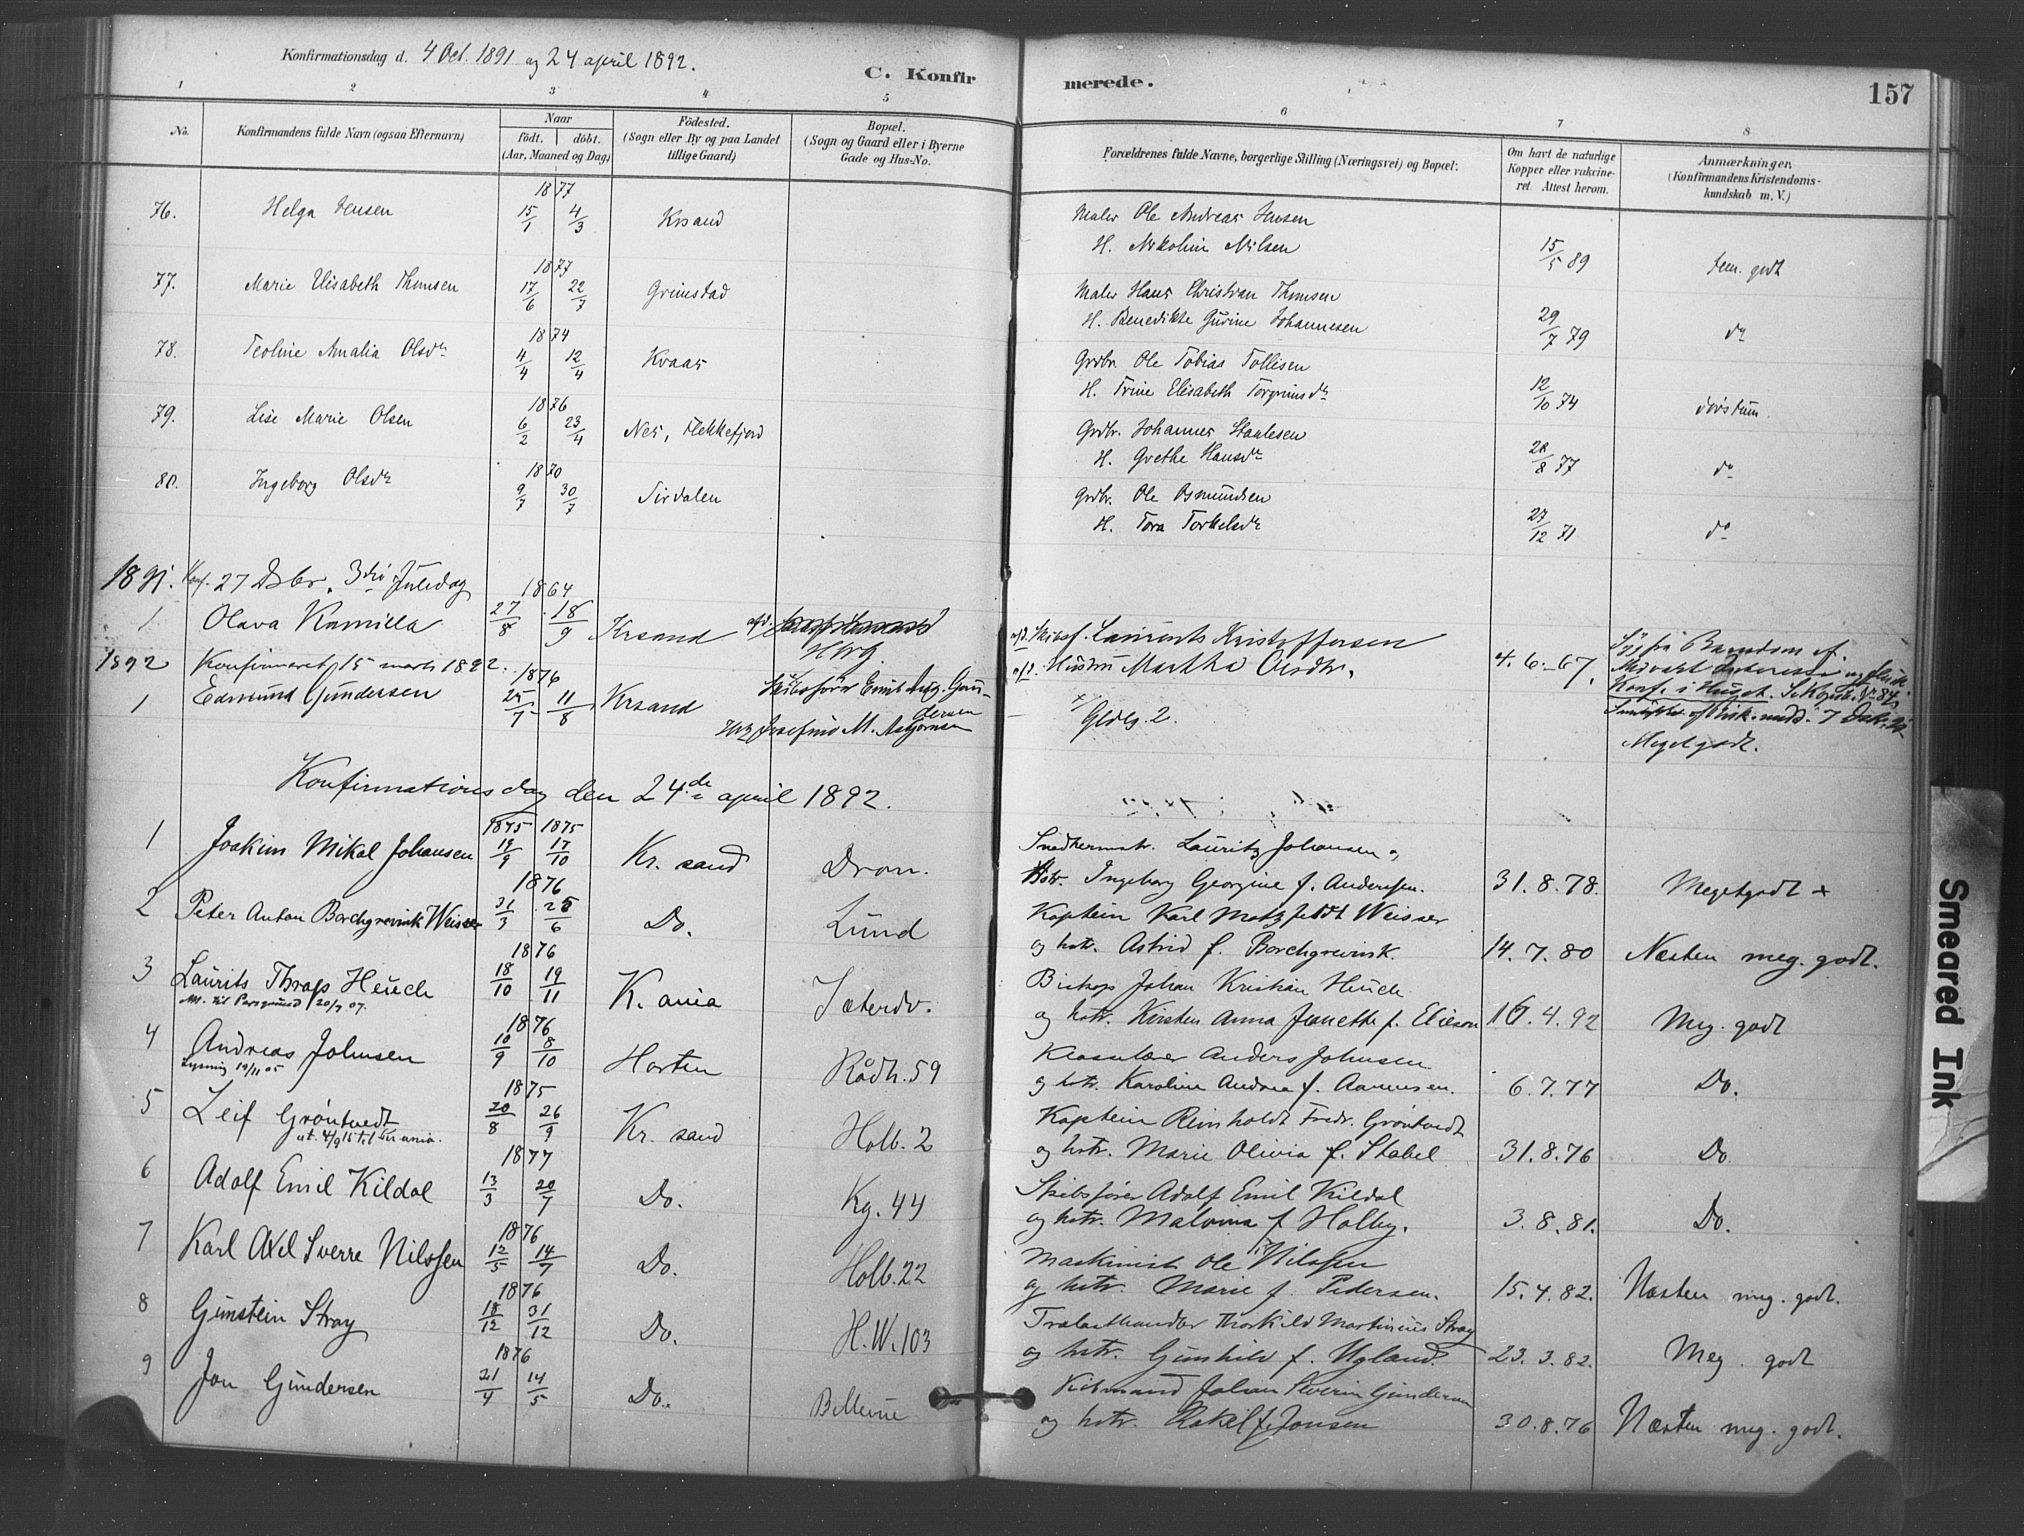 Konfirmationsdag d. 4 Oct. 1891 og 24 april 1892.
C. Konfirmerede.
157
1 2 3 4 5 6 7 8
No.
Konfirmandens fulde Navn (ogsaa Efternavn)
Naar
födt. döbt.
(Aar, Maaned og Dag)
Födested.
(Sogn eller By og paa Landet
tillige Gaard)
Bopæl.
(Sogn og Gaard eller i Byerne
Gade og Hus-No.
Forældrenes fulde Navne, borgerlige Stilling (Næringsvei) og Bopæl.
Om havt de naturlige
Kopper eller vakcineret. Attest herom.
Anmærkninger.
(Konfirmandens Kristendomskundskab m. V.)
1877
76. Helga Jensen 15/1 4/3 Krsand Maler Ole Andreas Jensen
H. Nikoline Nilsen 15/5 89 tem. godt
1877
77. Marie Elisabeth Thomsen 17/6 22/7 Grimstad Maler Hans Christian Thomsen
H. Benedikte Gurine Johannesen 29/7 79 do
1874
78. Teoline Amalia Olsdr 4/4 12/4 Kvaas Grdbr. Ole Tobias Tollisen
H. Trine Elisabeth Torgrimsdr 12/10 74 døvstum.
1876
79. Lise Marie Olsen 6/2 23/4 Nes, Flekkefjord Grdbr. Johannes Staalesen
H. Grethe Hansdr 28/8 77 do
1870
80. Ingeborg Olsdr 9/7 30/7 Sirdalen Grdbr. Ole Osmundsen
H. Tora Torkelsdr 27/12 71 do
1891. Konf. 27 Dsbr. 3die Juledag
1864
1 Olava Kamilla 27/8 18/9 Krsand afd. Skibsf. Laurits Kristoffersen
afd. Hustru Martha Olsdtr. 4. 6. 67. Syg fra Barndom af.
Konf. i Huset.
1892 Konfirmeret 15 marts 1892.
1876
1 Edmund Gundersen 25/7 11/8 Krsand Skibsfører Emil Aug. Gundersen
Josefine M. Asbjørnsen Gldlg. 2.
Megetgodt.
Konfirmationsdag den 24de april 1892.
1875 1875
1 Joakim Mikal Johansen 19/9 17/10 Kr. sand Dron. Snedkermstr. Lauritz Johansen og
Hstr. Ingeborg Georgine f. Andersen. 31. 8. 78. Megetgodt +
1876
2 Peter Anton Borchgrevink Weisser 31/3 25/6 Do. Lund Kaptein Karl Motzfeldt Weisser
og hstr. Astrid f. Borchgrevink. 14. 7. 80 Næsten meg. godt.
1876
3 Laurits Thrap Heuch 18/10 19/11 K. ania Sæterdv. Biskop Johan Kristian Heuch
Att. til Porsgrund 20/7 07.
og hstr. Kirsten Anna Jeanette f. Elieson 16. 4. 92 Meg. godt
1876
4 Andreas Johnsen 10/9 8/10 Horten Rådh. 59 Anders Johnsen
Lysning 19/11 05
og hstr. Karoline Andrea f. Aanensen. 6. 7. 77 Do.
1875
5 Leif Grøntvedt 20/8 26/9 Kr. sand Holb. 2 Kaptein Reinholdt Fredr. Grøntvedt
at. 4/9 15 til Kr. ania.
og hstr. Marie Olivia f. Stabel 31. 8. 76 Do
1877
6 Adolf Emil Kildal 13/3 20/7 Do. Kg. 44 Skibsfører Adolf Emil Kildal
og hstr. Malvina f. Holby. 3. 8. 81. Do.
1876
7 Karl Axel Sverre Nilssen 12/5 14/7 Do. Holb. 22 Maskinist Ole Nilssen
og hstr. Marie f. Pedersen. 15. 4. 82. Næsten meg. godt.
1876
8 Gunstein Stray 18/12 31/12 Do. H. W. 103 Trælasthandler Thorkild Martinius Stray
og hstr. Gunhild f. Ugland. 23. 3. 82. Meg. godt
1876
9 Jon Gundersen 21/4 14/5 Do. Bellevue Kjøbmand Johan Severin Gundersen
og hstr. Rakel f. Jonsen 30. 8. 76 Næsten meg. godt.
Smeared Ink